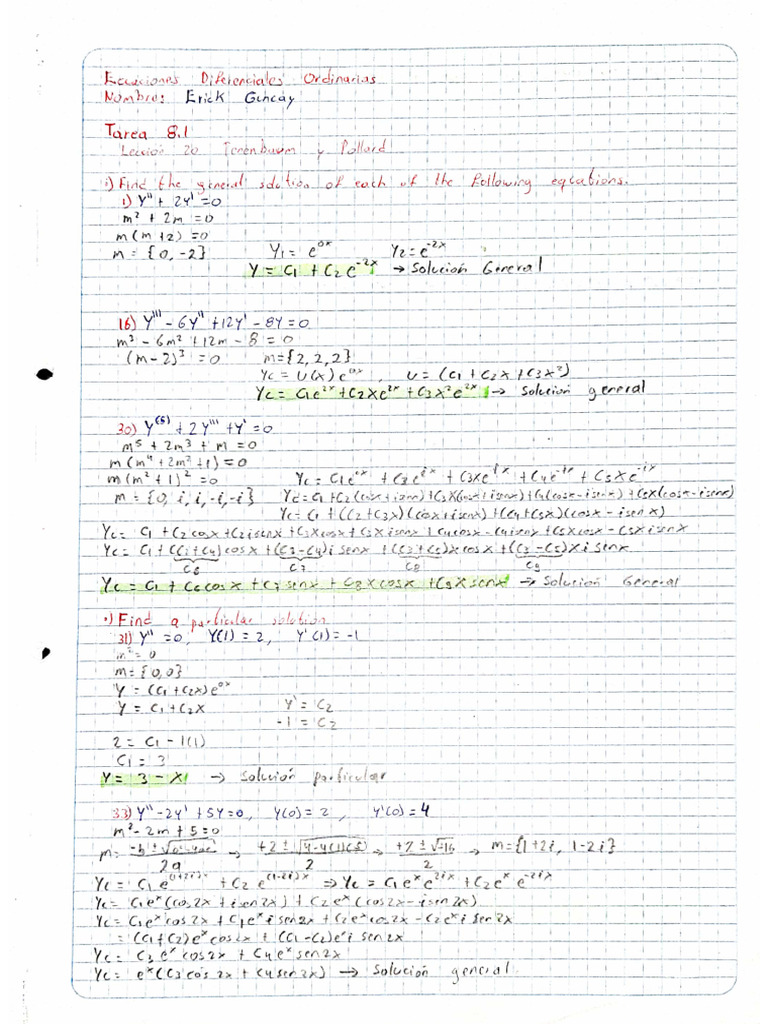 Ecuaciones Diferenciales Ordinarias
Nombre: Erick Guncay
Tarea 8.1
Lección 20 Tenenbaum y Pollard
•) Find the general solution of each of the following equations.
1) y'' + 2y' = 0
m² + 2m = 0
m(m+2) = 0
m = {0, -2}   y₁ = e^{0x}   y₂ = e^{-2x}
y = C₁ + C₂e^{-2x} → Solución General
16) y''' - 6y'' + 12y' - 8y = 0
m³ - 6m² + 12m - 8 = 0
(m-2)³ = 0   m = {2, 2, 2}
yc = U(x)e^{ax}, U = (C₁ + C₂x + C₃x²)
yc = C₁e^{2x} + C₂xe^{2x} + C₃x²e^{2x} → Solución general
30) y⁽⁵⁾ + 2y''' + y' = 0
m⁵ + 2m³ + m = 0
m(m⁴ + 2m² + 1) = 0
m(m² + 1)² = 0   yc = C₁e^{0x} + C₂e^{ix} + C₃xe^{ix} + C₄e^{-ix} + C₅xe^{-ix}
m = {0, i, i, -i, -i}   yc = C₁ + C₂(cosx + isenx) + C₃x(cosx + isenx) + C₄(cosx - isenx) + C₅x(cosx - isenx)
yc = C₁ + (C₂ + C₃x)(cosx + isenx) + (C₄ + C₅x)(cosx - isenx)
yc = C₁ + C₂cosx + C₂isenx + C₃xcosx + C₃xisenx + C₄cosx - C₄isenx + C₅xcosx - C₅xisenx
yc = C₁ + (C₂ + C₄)cosx + (C₂ - C₄)isenx + (C₃ + C₅)xcosx + (C₃ - C₅)xisenx
C₆ C₇ C₈ C₉
yc = C₁ + C₆cosx + C₇senx + C₈xcosx + C₉xsenx → Solución General
•) Find a particular solution
31) y'' = 0, y(1) = 2, y'(1) = -1
m² = 0
m = {0,0}
y = (C₁ + C₂x)e^{0x}
y = C₁ + C₂x   y' = C₂
-1 = C₂
2 = C₁ - 1(1)
C₁ = 3
y = 3 - x → Solución particular
33) y'' - 2y' + 5y = 0, y(0) = 2, y'(0) = 4
m² - 2m + 5 = 0
m = (-b ± √(b² - 4ac))/2a → (+2 ± √(4 - 4(1)(5)))/2 → (+2 ± √-16)/2 → m = {1+2i, 1-2i}
yc = C₁e^{(1+2i)x} + C₂e^{(1-2i)x} ⇒ yc = C₁eˣe^{2ix} + C₂eˣe^{-2ix}
yc = C₁eˣ(cos2x + isen2x) + C₂eˣ(cos2x - isen2x)
yc = C₁eˣcos2x + C₁eˣisen2x + C₂eˣcos2x - C₂eˣisen2x
= (C₁+C₂)eˣcos2x + (C₁-C₂)eˣisen2x
yc = C₃eˣcos2x + C₄eˣsen2x
yc = eˣ(C₃cos2x + C₄sen2x) → Solución general